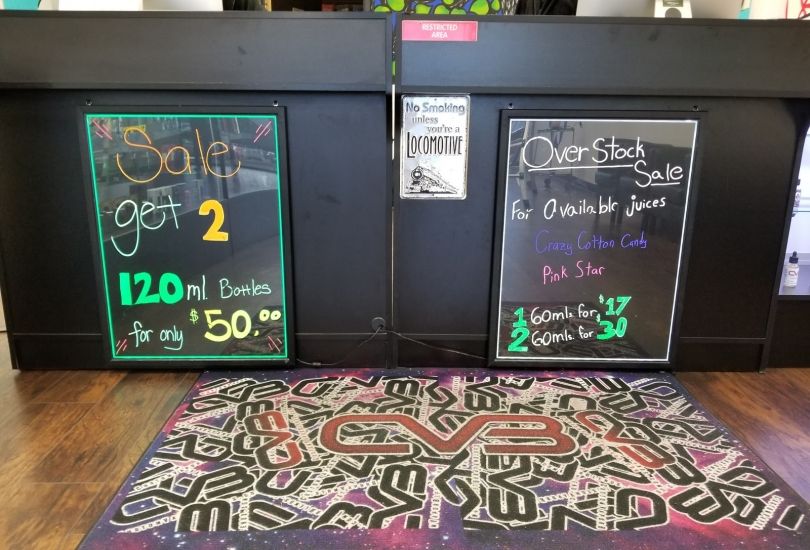 RESTRICTED
AREA
Sale
get 2
120 ml. Bottles
for only $50.00
No Smoking
unless
you're a
LOCOMOTIVE
Over Stock
Sale
For Available juices
Crazy Cotton Candy
Pink Star
1 60mls. for $17
2 60mls. for $30
CVB
CVB
CVB